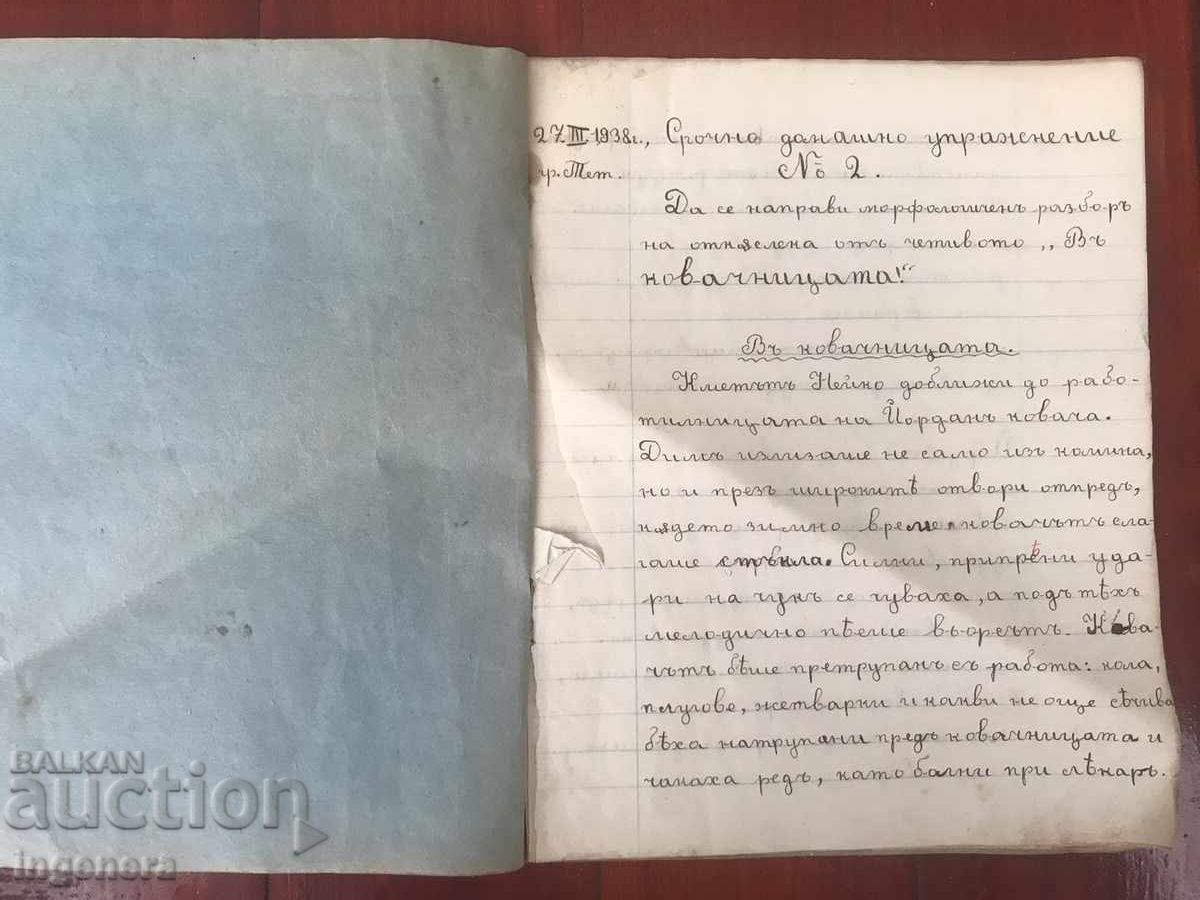 27 III 1938 г., Срочно домашно упражнение
гр. Тет. № 2.
Да се направи морфологиченъ разборъ
на откѫслека отъ четивото „Въ
ковачницата!“
Въ ковачницата.
Кметътъ Нейно доближи до рабо-
тилницата на Йорданъ ковача.
Димъ излизаше не само изъ комина,
но и презъ широкитѣ отвори отпредъ,
кѫдето зимно време ковачътъ сла-
гаше стъкла. Силни, припрѣни уда-
ри на чукъ се чуваха, а подъ тѣхъ
мелодично пѣеше въ орехътъ. Кова-
чътъ бѣше претрупанъ съ работа: кола,
плугове, жетварки и какви не още сѣчива
бѣха натрупани предъ ковачницата и
чакаха редъ, като болни при лѣкаръ.
BALKAN
auction
ingenera